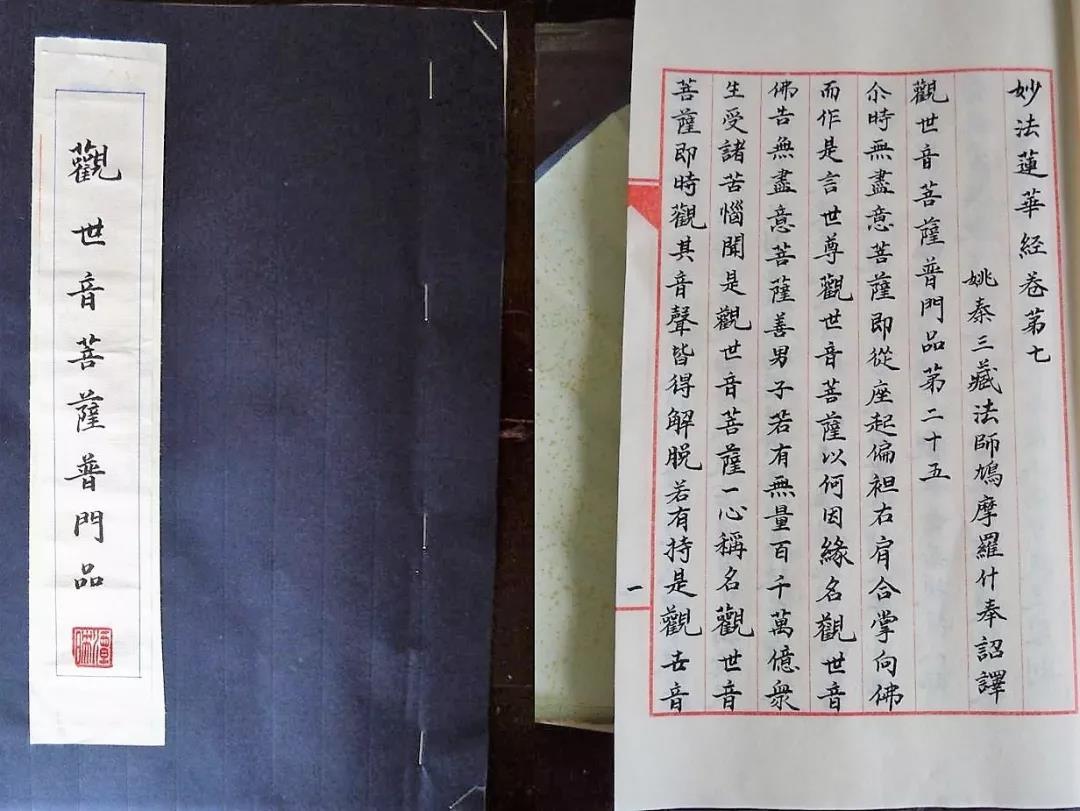 觀世音菩薩普門品
妙法蓮華経卷第七
姚秦三藏法師鳩摩羅什奉詔譯
觀世音菩薩普門品第二十五
尒時無盡意菩薩即從座起偏袒右肩合掌向佛
而作是言世尊觀世音菩薩以何因緣名觀世音
佛告無盡意菩薩善男子若有無量百千萬億衆
生受諸苦惱聞是觀世音菩薩一心稱名觀世音
菩薩即時觀其音聲皆得解脱若有持是觀世音
一